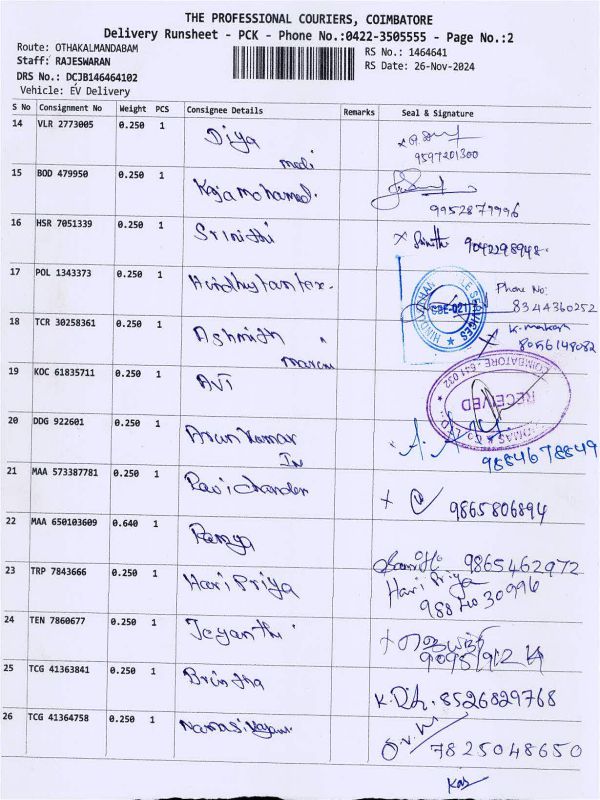 THE PROFESSIONAL COURIERS, COIMBATORE
Delivery Runsheet - PCK - Phone No.:0422-3505555 - Page No.:2
Route: OTHAKALMANDABAM
RS No.: 1464641
Staff: RAJESWARAN
RS Date: 26-Nov-2024
DRS No.: DCJB146464102
Vehicle: EV Delivery
S No Consignment No Weight PCS Consignee Details Remarks Seal & Signature
14 VLR 2773005 0.250 1 Diya
9597201300
15 BOD 479950 0.250 1 Kajamohamed
9952879996
16 HSR 7051339 0.250 1 Srinithi x Srinithi 9042298948
17 POL 1343373 0.250 1
Phone No:
8344360252
18 TCR 30258361 0.250 1 Ashmith
8056148082
19 KOC 61835711 0.250 1 AVT
COIMBATORE - 641 032
RECEIVED
20 DDG 922601 0.250 1 Arun Kumar
9884678849
21 MAA 573387781 0.250 1 Ravichander
9865806894
22 MAA 650103609 0.640 1 Ramya
9865462972
23 TRP 7843666 0.250 1 Hari Priya Hari Priya
24 TEN 7860677 0.250 1 Jeyanthi
25 TCG 41363841 0.250 1 Brintha
8526829768
26 TCG 41364758 0.250 1
7825048650